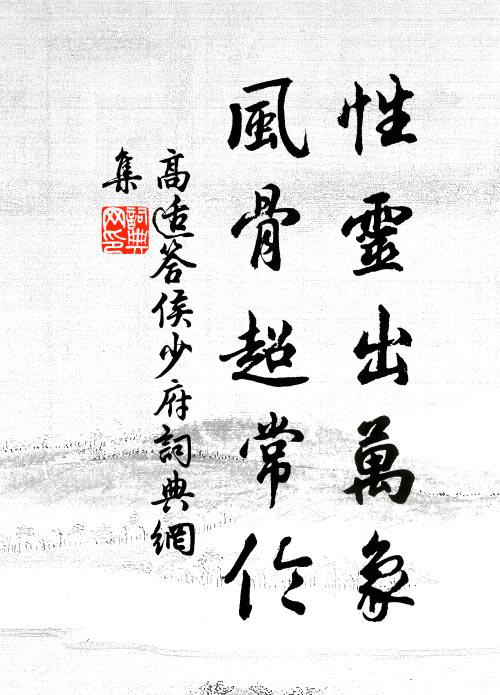 性靈出萬象
風骨超常伦
高适答侯少府詞典網
集
詞典
网印